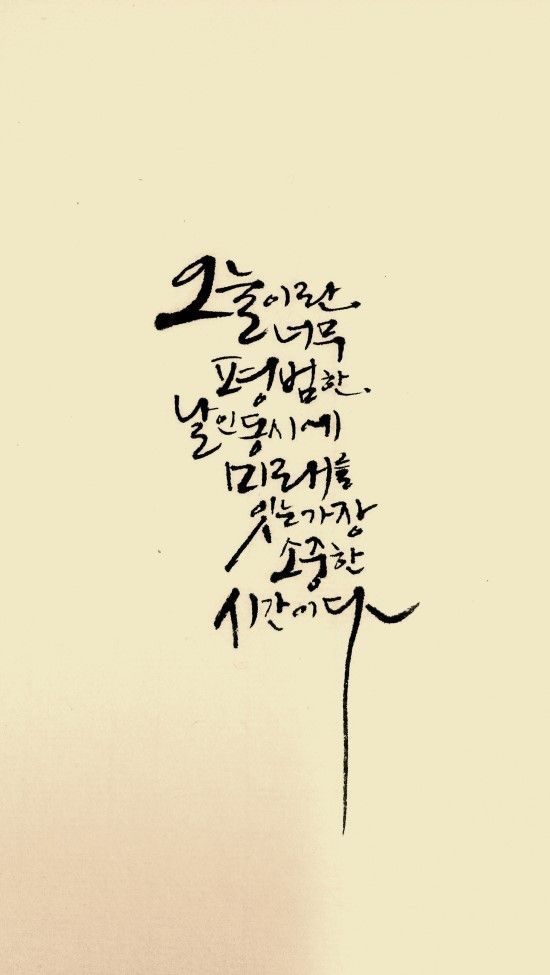 오늘이란
너무
평범한
날인동시에
미래를
잇는가장
소중한
시간이다